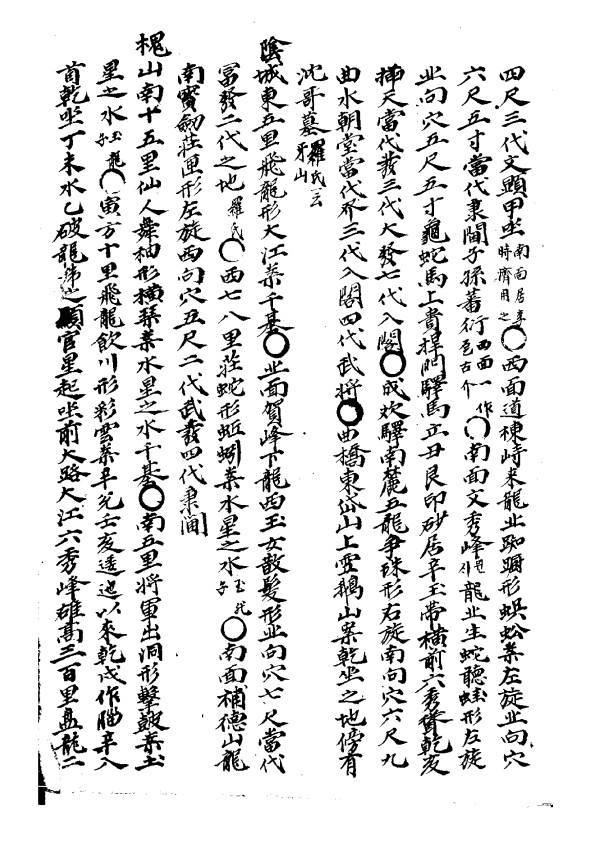 四尺三代文顯甲坐南面居多時濟用之○西面道棟峙来龍北踟躕形蜈蚣案左旋北向穴
六尺五寸當代秉閫子孫蕃衍西面一作邑古介○南面文秀峰 龍北生蛇聽蛙形左旋
北向穴五尺五寸龜蛇馬上貴捍門驛馬丑艮印砂居辛玉帶横前六秀聳乾亥
挿天當代發三代大發七代入閣○成欢驛南麓五龍爭珠形右旋南向穴六尺九
曲水朝堂當代發三代入閣四代武將○曲橋東岱山上雲鵝山案乾坐之地傍有
沈哥墓羅氏云牙山
陰城東五里飛龍形大江案千基○北面賀峰下龍西玉女散髮形北向穴七尺當代
富發二代之地羅氏○西七八里莊蛇形蚯蚓案水星之水玉龍子○南面補德山龍
南寳劒莊匣形左旋西向穴五尺二代武發四代秉閫
槐山南十五里仙人舞袖形横琴案水星之水千基○南五里將軍出洞形擊皷案土
星之水玉龍子○寅方十里飛龍飲川形彩雲案辛兌壬亥逶迤以來乾戌作腦辛入
首乾坐丁未水乙破龍 之顯官星起坐前大路大江六秀峰雄高三百里盘龍二